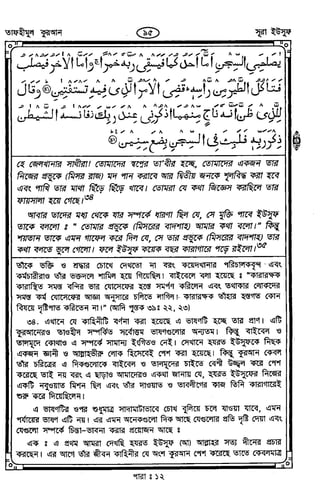 তাফহীমুল কুরআন
৯৫
সূরা ইউসুফ
يٰصَاحِبَيِ السِّجْنِ أَمَّا أَحَدُكُمَا فَيَسْقِي رَبَّهُ خَمْرًا ۚ وَأَمَّا الْآخَرُ فَيُصْلَبُ
فَتَأْكُلُ الطَّيْرُ مِنْ رَأْسِهِ ۚ قُضِيَ الْأَمْرُ الَّذِي فِيهِ تَسْتَفْتِيَانِ ﴿٤١﴾ وَقَالَ
لِلَّذِي ظَنَّ أَنَّهُ نَاجٍ مِنْهُمَا اذْكُرْنِي عِنْدَ رَبِّكَ فَأَنْسَاهُ الشَّيْطٰنُ
ذِكْرَ رَبِّهِ فَلَبِثَ فِي السِّجْنِ بِضْعَ سِنِينَ ﴿٤٢﴾
হে জেলখানার সাথীরা! তোমাদের স্বপ্নের তা'বীর হচ্ছে, তোমাদের একজন তার
নিজের প্রভুকে (মিসর রাজ) মদ পান করাবে আর দ্বিতীয় জনকে শূলবিদ্ধ করা হবে
এবং পাখি তার মাথা ছিঁড়ে ছিঁড়ে খাবে। তোমরা যে কথা জিজ্ঞেস করছিলে তার
ফায়সালা হয়ে গেছে।
আবার তাদের মধ্য থেকে যার সম্পর্কে ধারণা ছিল যে, সে মুক্তি পাবে ইউসুফ
তাকে বললো : "তোমার প্রভুকে (মিসরের বাদশাহ) আমার কথা বলো।" কিন্তু
শয়তান তাকে এমন গাফেল করে দিল যে, সে তার প্রভুকে (মিসরের বাদশাহ) তার
কথা বলতে ভুলে গেলো। ফলে ইউসুফ কয়েক বছর কারাগারে পড়ে রইলো।
তাঁকে ভক্তি ও শ্রদ্ধার চোখে দেখতো না বরং কয়েদখানার পরিচালকবৃন্দ এবং
কর্মচারীরাও তাঁর ভক্তদলে শামিল হয়ে গিয়েছিল। বাইবেলে বলা হয়েছে : "কারারক্ষক
কারাস্থিত সমস্ত বন্দির ভার যোসেফের হস্তে সমর্পণ করিলেন এবং তথাকার লোকদের
সমস্ত কর্ম যোসেফের আজ্ঞা অনুসারে চলিতে লাগিল। কারারক্ষক তাঁহার হস্তগত কোন
বিষয়ে দৃষ্টিপাত করিতেন না।" (আদি পুস্তক ৩৯ঃ ২২, ২৩)
৩৪. এখানে যে কাহিনীটি বর্ণনা করা হয়েছে এ ভাষণটি হচ্ছে তার প্রাণ। এটি
কুরআনেরও তাওহীদ সম্পর্কিত সর্বোত্তম ভাষণগুলোর অন্যতম। কিন্তু বাইবেল ও
তালমূদে কোথাও এ সম্পর্কে সামান্য ইংগিতও নেই। সেখানে হযরত ইউসুফকে নিছক
একজন জ্ঞানী ও আল্লাহভীরু লোক হিসেবেই পেশ করা হয়েছে। কিন্তু কুরআন কেবল
তাঁর চরিত্রের এ দিকগুলোকে বাইবেল ও তালমূদের চাইতে বেশী উজ্জ্বল করে পেশ
করেছে তাই নয় বরং এ ছাড়াও আমাদেরও একথা জানায় যে, হযরত ইউসুফের নিজের
একটি নবুওয়াত মিশন ছিল এবং তাঁর দাওয়াত ও তাবলীগের কাজ তিনি কারাগারেই
শুরু করে দিয়েছিলেন।
এ ভাষণটির ওপর শুধুমাত্র সাদামাটাভাবে চোখ বুলিয়ে চলে যাওয়া যাবে, এমন
পর্যায়ের ভাষণ এটি নয়। এর এমন অনেকগুলো দিক আছে যেগুলোর প্রতি দৃষ্টি দেয়া এবং
যেগুলো সম্পর্কে চিন্তা-ভাবনা করার প্রয়োজন আছে :
এক : এ প্রথম আমরা দেখছি হযরত ইউসুফ (আ) আল্লাহর সত্য দীনের প্রচার
করছেন। এর আগে তাঁর জীবন কাহিনীর যে অংশ কুরআন পেশ করেছে তাতে কেবলমাত্র
পারা : ১২